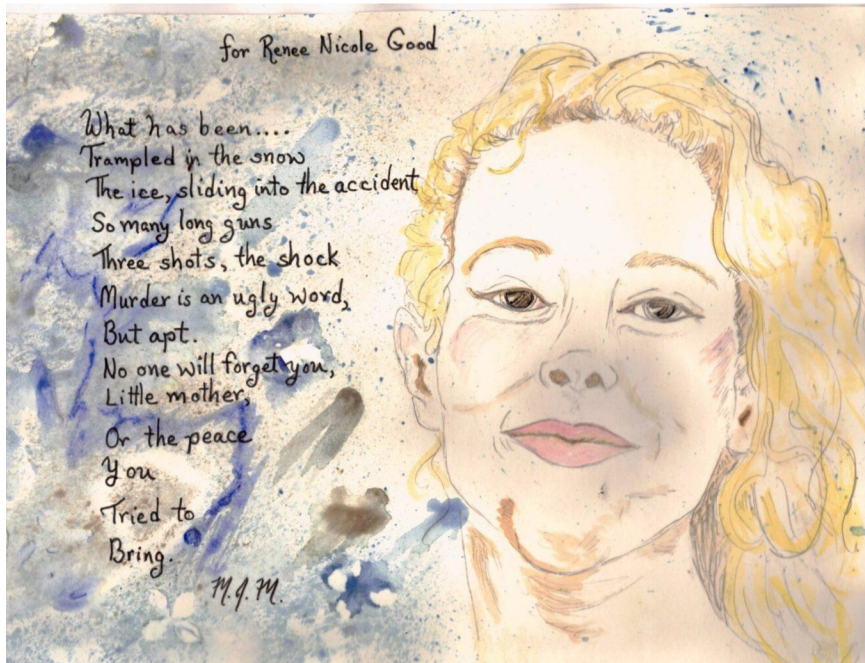 for Renee Nicole Good
What has been....
Trampled in the snow
The ice, sliding into the accident
So many long guns
Three shots, the shock
Murder is an ugly word,
But apt.
No one will forget you,
Little mother,
Or the peace
You
Tried to
Bring.
M.J.M.